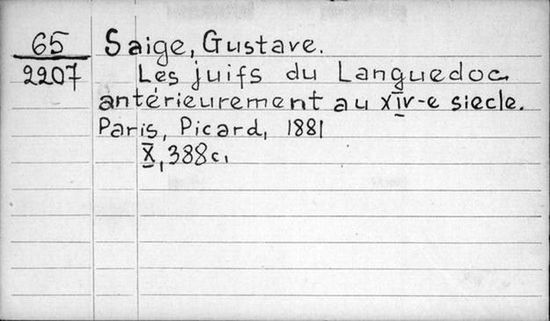 65
2207
Saige, Gustave.
Les juifs du Languedoc
antérieurement au XIV-e siecle.
Paris, Picard, 1881
X, 388 c.